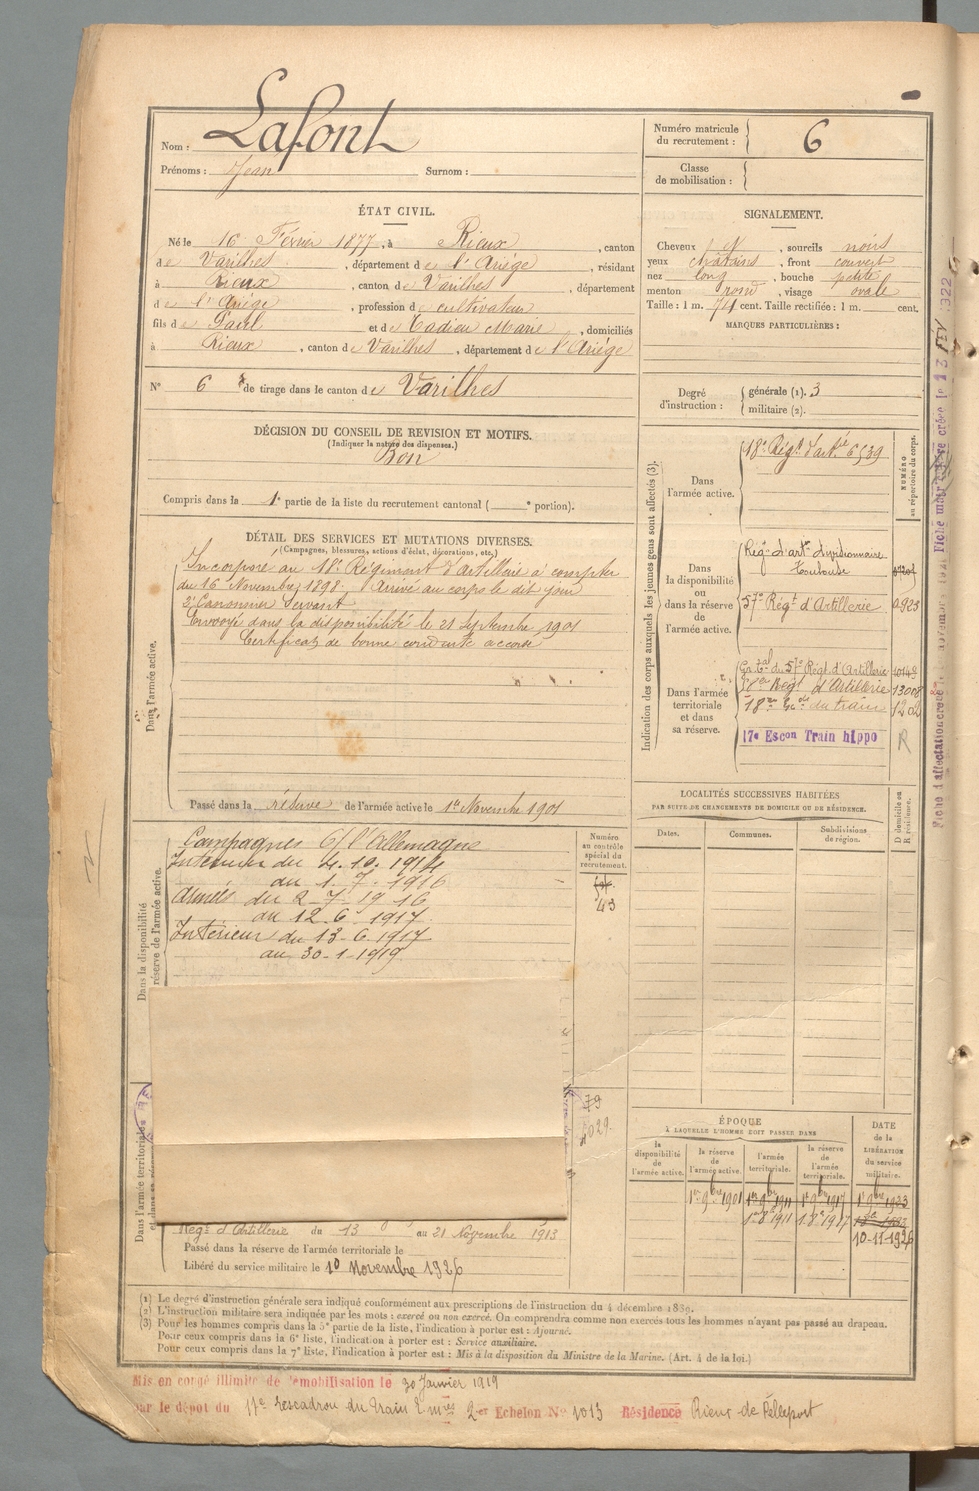 Nom : Lafont
Prénoms : Jean Surnom :
Numéro matricule du recrutement : 6
Classe de mobilisation :
ÉTAT CIVIL.
Né le 16 Février 1877, à Rieux, canton
de Varilhes, département de l'Ariège, résidant
à Rieux, canton de Varilhes, département
de l'Ariège, profession de cultivateur
fils de Paul et de Cadieu Marie, domiciliés
à Rieux, canton de Varilhes, département de l'Ariège
N° 6 de tirage dans le canton de Varilhes
SIGNALEMENT.
Cheveux N, sourcils noirs
yeux chatains, front couvert
nez long, bouche petite
menton rond, visage ovale
Taille : 1 m. 74 cent. Taille rectifiée : 1 m. cent.
MARQUES PARTICULIÈRES :
Degré d'instruction : générale (1). 3
militaire (2).
DÉCISION DU CONSEIL DE REVISION ET MOTIFS.
(Indiquer la nature des dispenses.)
Bon
Compris dans la 1e partie de la liste du recrutement cantonal ( e portion).
DÉTAIL DES SERVICES ET MUTATIONS DIVERSES.
(Campagnes, blessures, actions d'éclat, décorations, etc.)
Dans l'armée active.
Incorporé au 18e Régiment d'artillerie à compter
du 16 Novembre 1898. Arrivé au corps le dit jour
2e Canonnier Servant
Envoyé dans la disponibilité le 21 Septembre 1901
Certificat de bonne conduite accordé
Passé dans la réserve de l'armée active le 1er Novembre 1901
Indication des corps auxquels les jeunes gens sont affectés (3).
NUMÉRO au répertoire du corps.
Dans l'armée active.
18e Régt d'artie 6539
Dans la disponibilité ou dans la réserve de l'armée active.
Régt d'artie divisionnaire
Toulouse
57e Régt d'Artillerie 0923
Dans l'armée territoriale et dans sa réserve.
Gr. tal du 57e Régt d'Artillerie
Régt d'Artillerie
18e Eon du train 1202
17e Escon Train hippo R
LOCALITÉS SUCCESSIVES HABITÉES
PAR SUITE DE CHANGEMENTS DE DOMICILE OU DE RÉSIDENCE.
Dates. Communes. Subdivisions de région. D domicile ou R résidence.
Dans la disponibilité
réserve de l'armée active.
Campagnes C/ l'Allemagne
Intérieur du 4.10.1914
au 1.7.1916
Armées du 2-7-1916
au 12.6.1917
Intérieur du 13-6-1917
au 30-1-1919
Numéro au contrôle spécial du recrutement.
43
Dans l'armée territoriale
79
1029
Régt d'Artillerie du 13 au 21 Novembre 1913
Passé dans la réserve de l'armée territoriale le
Libéré du service militaire le 10 Novembre 1926
ÉPOQUE
À LAQUELLE L'HOMME DOIT PASSER DANS
la disponibilité de l'armée active.
la réserve de l'armée active.
l'armée territoriale.
la réserve de l'armée territoriale.
DATE de la LIBÉRATION du service militaire.
1er 9bre 1901 1er 9bre 1911 1er 9bre 1917 1er 9bre 1923
10-11-1926
(1) Le degré d'instruction générale sera indiqué conformément aux prescriptions de l'instruction du 4 décembre 1889.
(2) L'instruction militaire sera indiquée par les mots : exercé ou non exercé. On comprendra comme non exercés tous les hommes n'ayant pas passé au drapeau.
(3) Pour les hommes compris dans la 5e partie de la liste, l'indication à porter est : Ajourné.
Pour ceux compris dans la 6e liste, l'indication à porter est : Service auxiliaire.
Pour ceux compris dans la 7e liste, l'indication à porter est : Mis à la disposition du Ministre de la Marine. (Art. 4 de la loi.)
Mis en congé illimité de démobilisation le 30 Janvier 1919
par le dépot du 17e escadron du train 2er Echelon N° 1013 Résidence Rieux de Pelleport